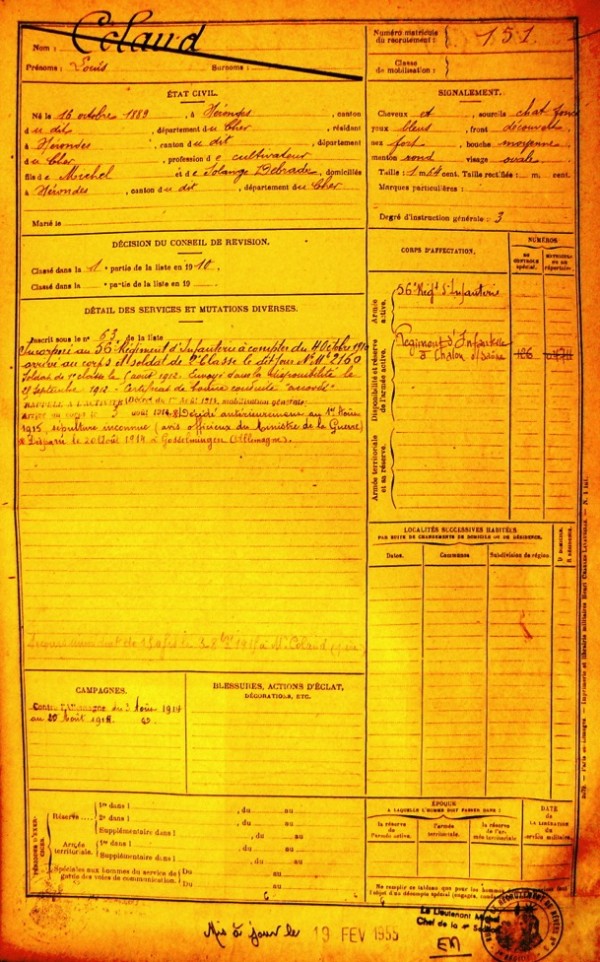 Nom : Colaud
Prénoms : Louis Surnoms :
Numéro matricule du recrutement : 151
Classe de mobilisation :
ÉTAT CIVIL.
Né le 16 octobre 1889, à Nérondes, canton
du dit, département du Cher, résident
à Nérondes, canton du dit, département
du Cher, profession de cultivateur
fils de Michel et de Solange Debrade, domiciliés
à Nérondes, canton du dit, département du Cher.
Marié le
SIGNALEMENT.
Cheveux et sourcils chat foncé
yeux bleus, front découvert
nez fort, bouche moyenne
menton rond, visage ovale.
Taille : 1 m. 64 cent. Taille rectifiée : m. cent.
Marques particulières :
Degré d'instruction générale : 3
DÉCISION DU CONSEIL DE RÉVISION.
Classé dans la 1e partie de la liste en 1910.
Classé dans la e partie de la liste en 19
DÉTAIL DES SERVICES ET MUTATIONS DIVERSES.
Inscrit sous le n° 63 de la liste
Incorporé au 56e Régiment d'Infanterie à compter du 4 Octobre 1910
arrivé au corps et soldat de 2e classe le dit jour N° Mle 2160
Soldat de 1e classe le 1 août 1912. Envoyé dans la disponibilité le
27 Septembre 1912. Certificat de bonne conduite "accordé"
RAPPELÉ À L'ACTIVITÉ (Décret du 1er Août 1914, mobilisation générale)
Arrivé au corps le 3 août 1914. Décédé antérieurement au 1er Février
1915, sépulture inconnue (avis officieux du Ministre de la Guerre)
Disparu le 20 Août 1914 à Gosselmingen (Allemagne).
CORPS D'AFFECTATION.
NUMÉROS
au contrôle spécial.
matricule ou au répertoire.
Armée active.
56e Régt d'Infanterie
Disponibilité et réserve de l'armée active.
Régiment d'Infanterie
à Chalon s/Saône
Armée territoriale et sa réserve.
LOCALITÉS SUCCESSIVES HABITÉES
PAR SUITE DE CHANGEMENTS DE DOMICILE OU DE RÉSIDENCE.
Dates. Communes Subdivision de région D domicile. R résidence.
CAMPAGNES.
Contre l'Allemagne du 3 Août 1914
au 20 Août 1914.
BLESSURES, ACTIONS D'ÉCLAT,
DÉCORATIONS, ETC.
PÉRIODES D'EXERCICES
Réserve
1re dans l , du au
2e dans l , du au
Supplémentaire dans l , du au
Armée territoriale.
1re dans l , du au
Supplémentaire dans l , du au
Spéciales aux hommes du service de garde des voies de communication.
Du au
Du au
ÉPOQUE
À LAQUELLE L'HOMME DOIT PASSER DANS :
la réserve de l'armée active.
l'armée territoriale.
la réserve de l'armée territoriale
DATE
DE LA LIBÉRATION DU service militaire.
Mis à jour le 19 FEV 1955
Chef de la 4e Section